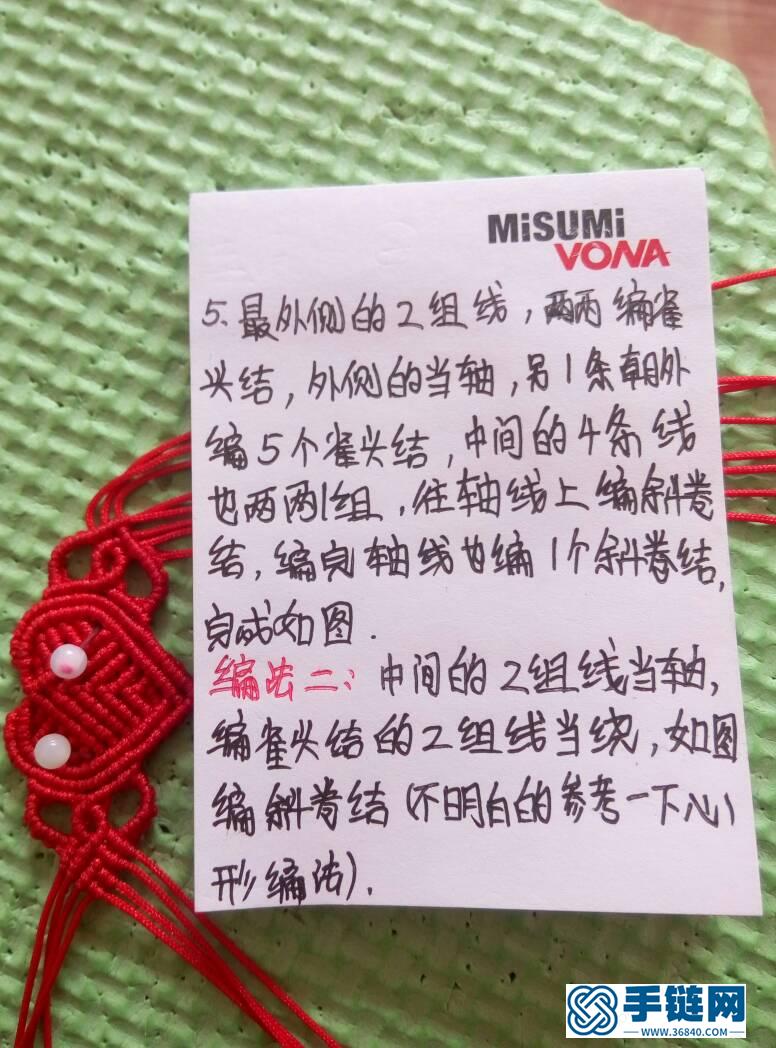 MiSUMi
VONA
5、最外侧的2组线，两两编雀
头结，外侧的当轴，另1条朝外
编5个雀头结，中间的4条线
也两两1组，往轴线上编斜卷
结，编完轴线也编1个斜卷结，
完成如图.
编法二：中间的2组线当轴，
编雀头结的2组线当绕，如图
编斜卷结(不明白的参考一下心
形编法).
手链网
WWW.36840.COM